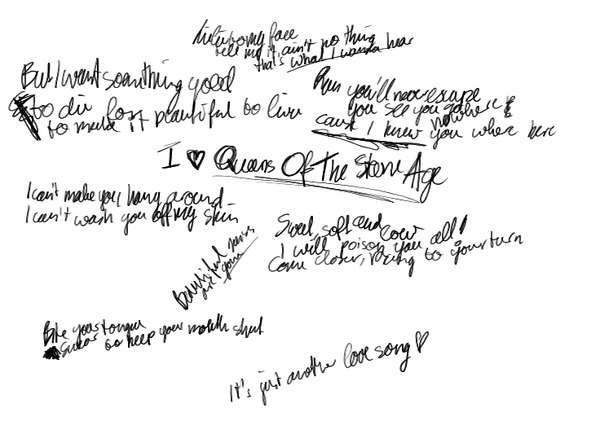 Lie to my face
tell me it ain't no thing
that's what I wanna hear
But I want something good
to die for
to make it beautiful to live
Run you'll never escape
you see you go nowhere
cause I knew you where here
I ♥ Queens Of The Stone Age
I can't make you hang around
I can't wash you off my skin
Sweet, soft and low
I will poison you all
Come closer, racing to your turn
Beautiful
are
Bite your tongue
Swear to keep your mouth shut
It's just another love song ♡